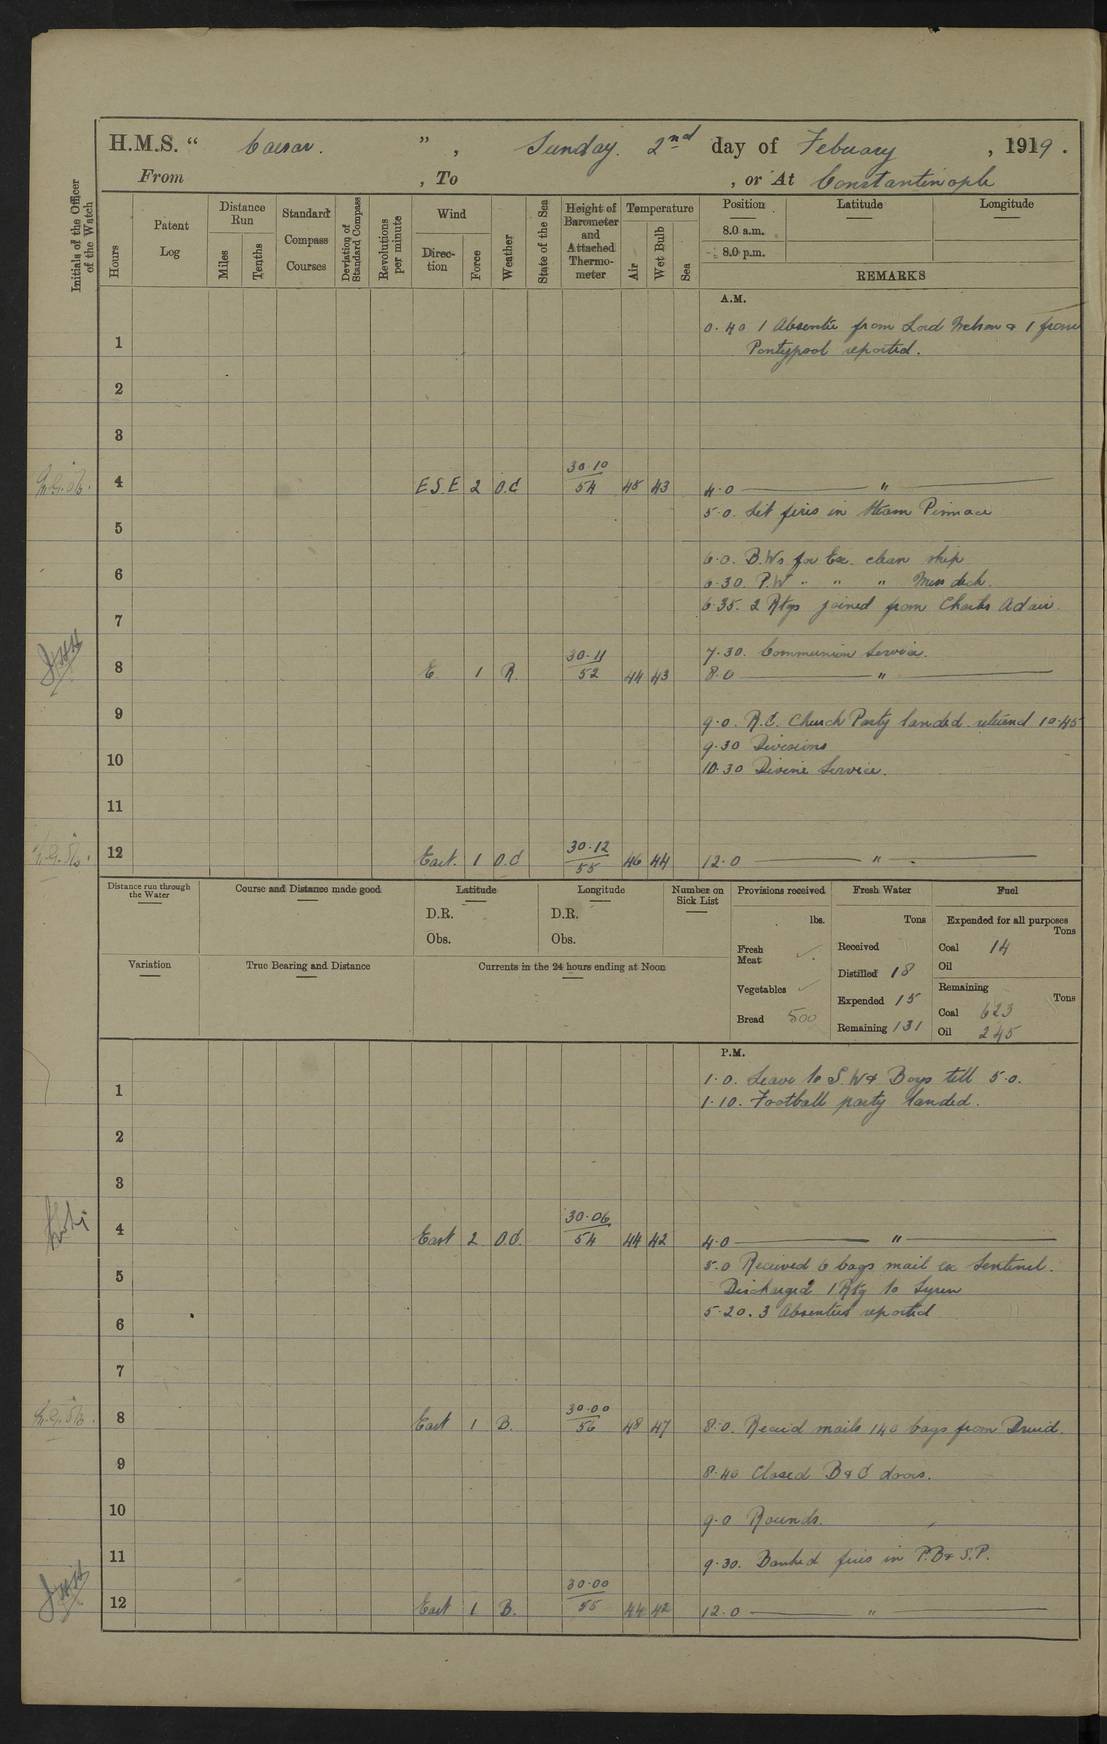 H.M.S. " Caesar. " , Sunday. 2nd day of Febuary , 1919.
From , To , or At Constantinople
Initials of the Officer of the Watch
Hours
Patent Log
Distance Run
Miles
Tenths
Standard Compass Courses
Deviation of Standard Compass
Revolutions per minute
Wind
Direction
Force
Weather
State of the Sea
Height of Barometer and Attached Thermometer
Temperature
Air
Wet Bulb
Sea
Position Latitude Longitude
8.0 a.m.
8.0 p.m.
REMARKS
A.M.
0.40 1 Absentee from Lord Nelson & 1 from
1 Pontypool reported.
2
3
4 E.S.E 2 O.C 30.10 54 45 43 4.0 "
5.0. Lit fires in Steam Pinnace
5
6.0. B.Ws for Ex. clean ship
6 6.30. P.W " " " Mess deck.
6.35. 2 Rtgs joined from Charles Adair.
7
7.30. Communion Service.
8 E. 1 R. 30.11 52 44 43 8.0 "
9 9.0. R.C. Church Party landed. returned 10.45
9.30 Divisions
10 10.30 Divine Service.
11
12 East. 1 O.C 30.12 55 46 44 12.0 "
Distance run through the Water
Course and Distance made good
Latitude
D.R.
Obs.
Longitude
D.R.
Obs.
Number on Sick List
Variation
True Bearing and Distance
Currents in the 24 hours ending at Noon
Provisions received
lbs.
Fresh Meat ✓.
Vegetables ✓
Bread 500
Fresh Water
Tons
Received
Distilled 18
Expended 15
Remaining 131
Fuel
Expended for all purposes
Tons
Coal 14
Oil
Remaining
Tons
Coal 623
Oil 245
P.M.
1.0. Leave to S.W & Boys till 5.0.
1 1.10. Football party landed.
2
3
4 East 2 O.C. 30.06 54 44 42 4.0 "
5.0 Received 6 bags mail ex Sentinel.
5 Discharged 1 Rtg to Syren
5.20. 3 Absentees reported
6
7
8 East 1 B. 30.00 56 48 47 8.0. Recvid mails 140 bags from Druid.
9 8.40 Closed B & C doors.
10 9.0 Rounds.
11 9.30. Banked fires in P.B & S.P.
12 East 1 B. 30.00 55 44 42 12.0 "